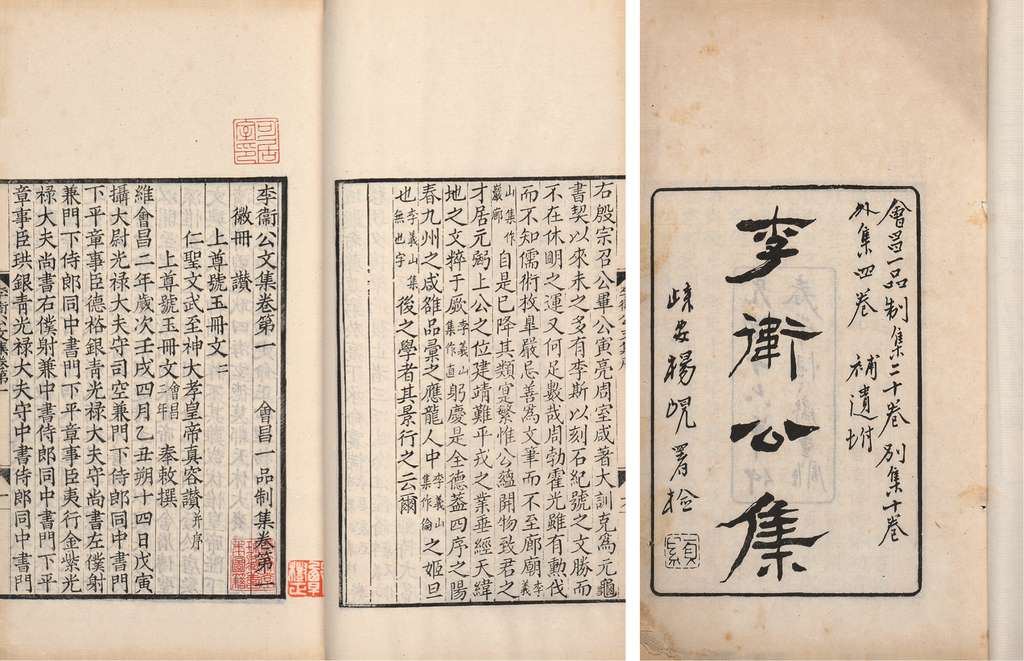 會昌一品制集二十卷 別集十卷
外集四卷 補遺坿
李衛公集
歸安楊峴署檢
右殷宗召公畢公寅亮周室咸著大訓克爲元龜
書契以來未之多有李斯以刻石紀號之文勝而
不在休明之運又何足數哉周勃霍光雖有勳伐
而不知儒術枚皋嚴忌善爲文筆而不至廊廟李義
山集作巖廊自是已降其類寔繁惟公蘊開物致君之
才居元弼上公之位建靖難平戎之業垂經天緯
地之文粹于厥李義山集作直躬慶是全德蓋四序之陽
春九州之咸雒品彙之應龍人中李義山集作倫之姬旦
也李義山集無也字後之學者其景行之云爾
可居室印
李衞公文集卷第一 會昌一品制集卷第一
徽冊 讃
上尊號玉冊文二
仁聖文武至神大孝皇帝真容讃并序
上尊號玉冊文會昌二年 奉敕撰
維會昌二年歲次壬戌四月乙丑朔十四日戊寅
攝大尉光禄大夫守司空兼門下侍郎同中書門
下平章事臣德裕銀青光禄大夫守尚書左僕射
兼門下侍郎同中書門下平章事臣夷行金紫光
禄大夫尚書右僕射兼中書侍郎同中書門下平
章事臣珙銀青光禄大夫守中書侍郎同中書門